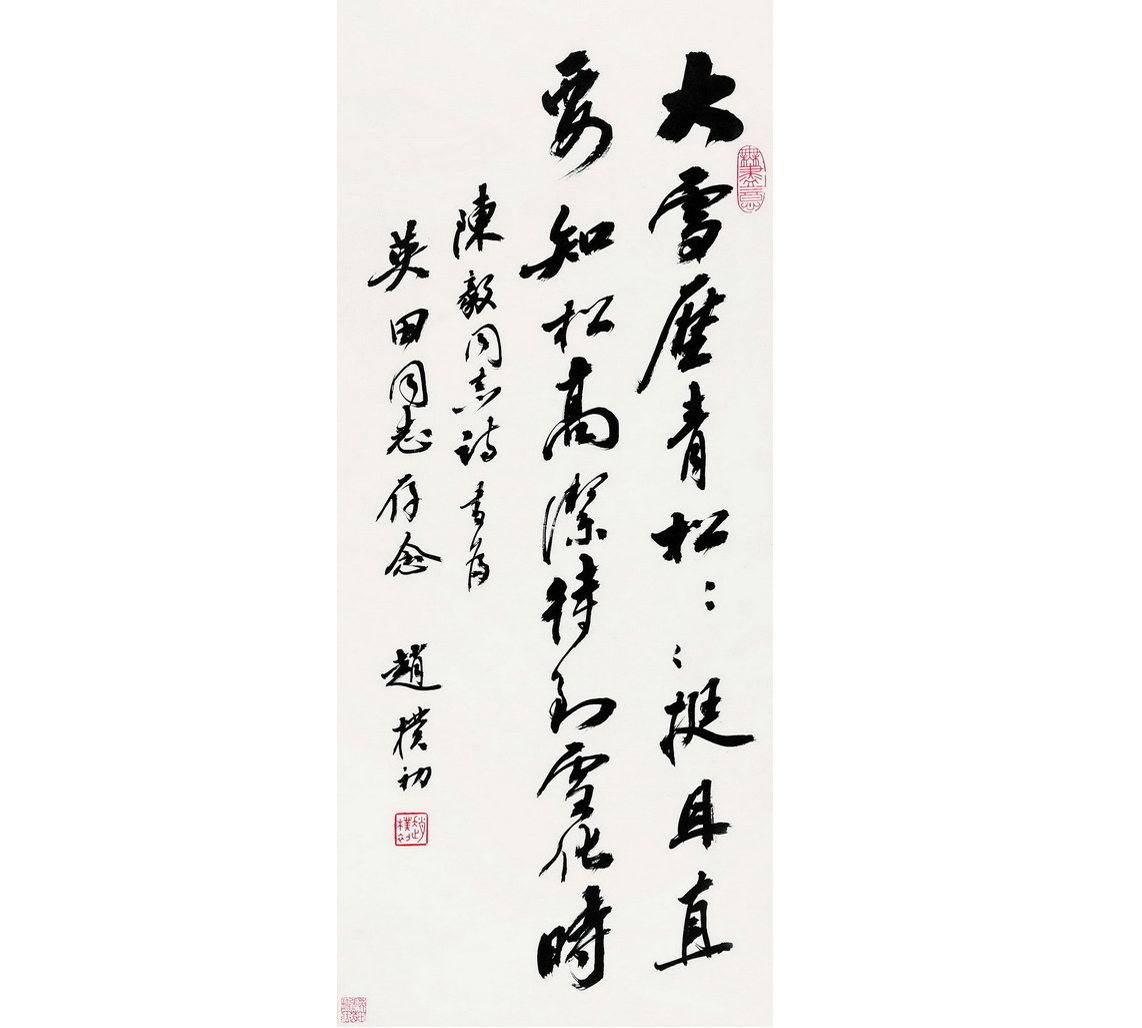 大雪壓青松〻〻挺且直
無盡意
要知松高潔待到雪化時
陳毅同志詩 書為
英田同志存念 趙樸初
趙樸初